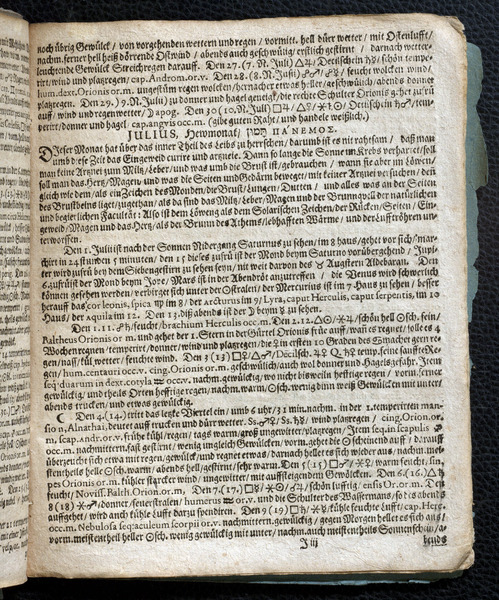 noch übrig Gewülck / von vorgehenden wettern und regen / vormitt. hell dürr wetter / mit Ostenlufft /
nachm. ferner heiß dörrende Ostwind / abends auch geschwülig / erstlich gestirnt / darnach wetter-
leuchtende Gewülck Streichregen darauff. Den 27. (7. N. Jul) △♃ / Decilsch in ♄ / schön tempe-
rirt wind und platzregen / cap. Androm. or. v. Den 28. (8. N. Julii) ☍♂ / ☿ / feucht wolcken wind /
hum. dext. Orionis or m. ungestüm regen wolcken / hernacher etwas heller / geschwülich / abends donner
platzregen. Den 29. (9. N. Julii) zu donner und hagel geneigt / die rechte Schulter Orionis gehet zu frü
auff / wind und regenwetter / apog. Den 30 (10. N. Jul)
perirt / donner und hagel, cap. angvis occ. m. (gibt guten Rahe / und handele weißlich.)
JULIUS, Hewmonat / ΠΑΝΕΜΟΣ.
Dieser Monat har über das inner Theil des Leibs zu herrschen / darumb ist es nit rahtsam / daß man
umb diese Zeit das Eingeweid curire und artzneie. Dann so lange die Sonne im Krebs verharret / soll
man keine Artznei zum Miltz / Leber / Magen / und was umb die Brust ist / gebrauchen / wann sie aber im Löwen /
soll man das Hertz / Magen und was die Seiten und Gedärm beweget / mit keiner Artznei versuchen / dañ
gleich wie dem / als ein Zeichen des Monden / die Brust / Lungen / Dutten / und alles was an der Seiten
des Brustbeins liget / zugethan / als da sind das Miltz / Leber / Magen und der Brunnquell der natürlichen
und begierlichen Facultät: Also ist dem Löwen als dem Solarischen Zeichen / der Rücken / Seiten / Ein-
geweid / Magen und das Hertz / als der Brunn des Athems / lebhafften Wärme / und der Lufftröhren un-
terworffen.
Den 1. Julii ist nach der Sonnen Nidergang Saturnus zu sehen / im 8 haus / gehet vor sich / mar-
schirt in 24 stunden 5 minuten / den 15 dieses zu frü ist der Mond beym Saturno vorübergehend / Jupi-
ter wird zu frü bey dem Siebengestirn zu sehen seyn / nit weit darvon des ♉ Augstern Aldebaran. Den
6. zu frü ist der Mond beym Jove, Mars ist in der Abendröt anzutreffen / die Venus wird schwerlich
können gesehen werden / verbirget sich unter der Ostralen / der Mercurius ist im 7 Haus zu sehen / besser
herauff das cor leonis, spica ♍ im 8 / der arcturus im 9 / Lyra, caput Herculis, caput serpentis, im 10
Haus / der Aquila im 12. Den 13. diß abends ist der ☽ beym ♄ zu sehen.
Den 1. 11. ☍♄ / feucht / brachium Herculis occ. m. Den 2. 12. △☉ / ⚹♃ / schön hell ☉sch. fein /
Raltheus Orionis or m. und gehet der 1. Stern in der Gürtel Orionis früe auff / wañ es regnet / solle es 4
Wochen regnen / temperirt / donner / wind und platzregen / die ♀ in ersten 10 Graden des Camacher gern re-
gen / naß / sul / wetter / feuchte wind. Den 3 (13) □♀ / △♂ / Decilsch. temp. seine sanffte Re-
gen / hum. centauri occ. v. cing. Orionis or m. geschwülich / auch wol donner und Hagels gefahr. Item
seq. duarum in dext. cotyla ♒ occ v. nachm. gewülckig / wo nicht bisweiln hefftige regen / vorm. ferner
gewülckig / und theils Orten hefftige regen / nachm. warm / ☉sch. wenig dinn weiß Gewülcken mit unter /
abends trucken / und etwas gewülckig.
☾ Den 4. (14) tritt das letzte Viertel ein / umb 6 uhr / 31 min. nachm. in der 2. temperirten man-
sion ♈, Alnathai, deutet auff trucken und dürr wetter. Ss. ♂ ♀ / Ss. ♄♀ / wind platzregen / cing. Orion. or.
m. scap. andr. or. v. frühe kühl / regen / tags warm / groß ungewitter / platzregen / Item seq. in scapulis
occ. m. nachmittern. fast gestirnt / wenig unzleich Gewülcken / vorm. gehet die ☉ scheinend auff / darauff
überzeucht sich etwa mit regen / gewülck / und regnet etwas / darnach hellet es sich wieder aus / nachm. mei-
stentheils helle ☉sch. warm / abends hell / gestirnt / sehr warm. Den 5 (15) □♂ / ⚹♀ / warm feucht / sin.
pes Orionis or m. kühler starcker wind / ungewitter / mit auffsteigendem Gewölcken. Den 6. (16.) △♄
feucht / Noviss. Ralth. Orion. or m. Den 7. (17.) □♃ / ⚹☉ / schön lufftig / ensis Or. or. m. Den
8 (18) ⚹♂ / donner / feuer stralen / humerus ♒ or. v. und die Schulter des Wassermans / so es abends
auffgehet / wird auch kühle Lufft darzu spendiren. Den 9 (19) □♄ / ⚹♀ / kühle feuchte Lufft / cap. Herc.
occ. m. Nebulosa seq. aculeum scorpii or. v. nachmittern. gewülckig / gegen Morgen hellet es sich aus /
vorm. meistentheil heller ☉sch. wenig gewülckig mit unter / nachm. auch meistentheils Sonnenschein / a-
J iij bends